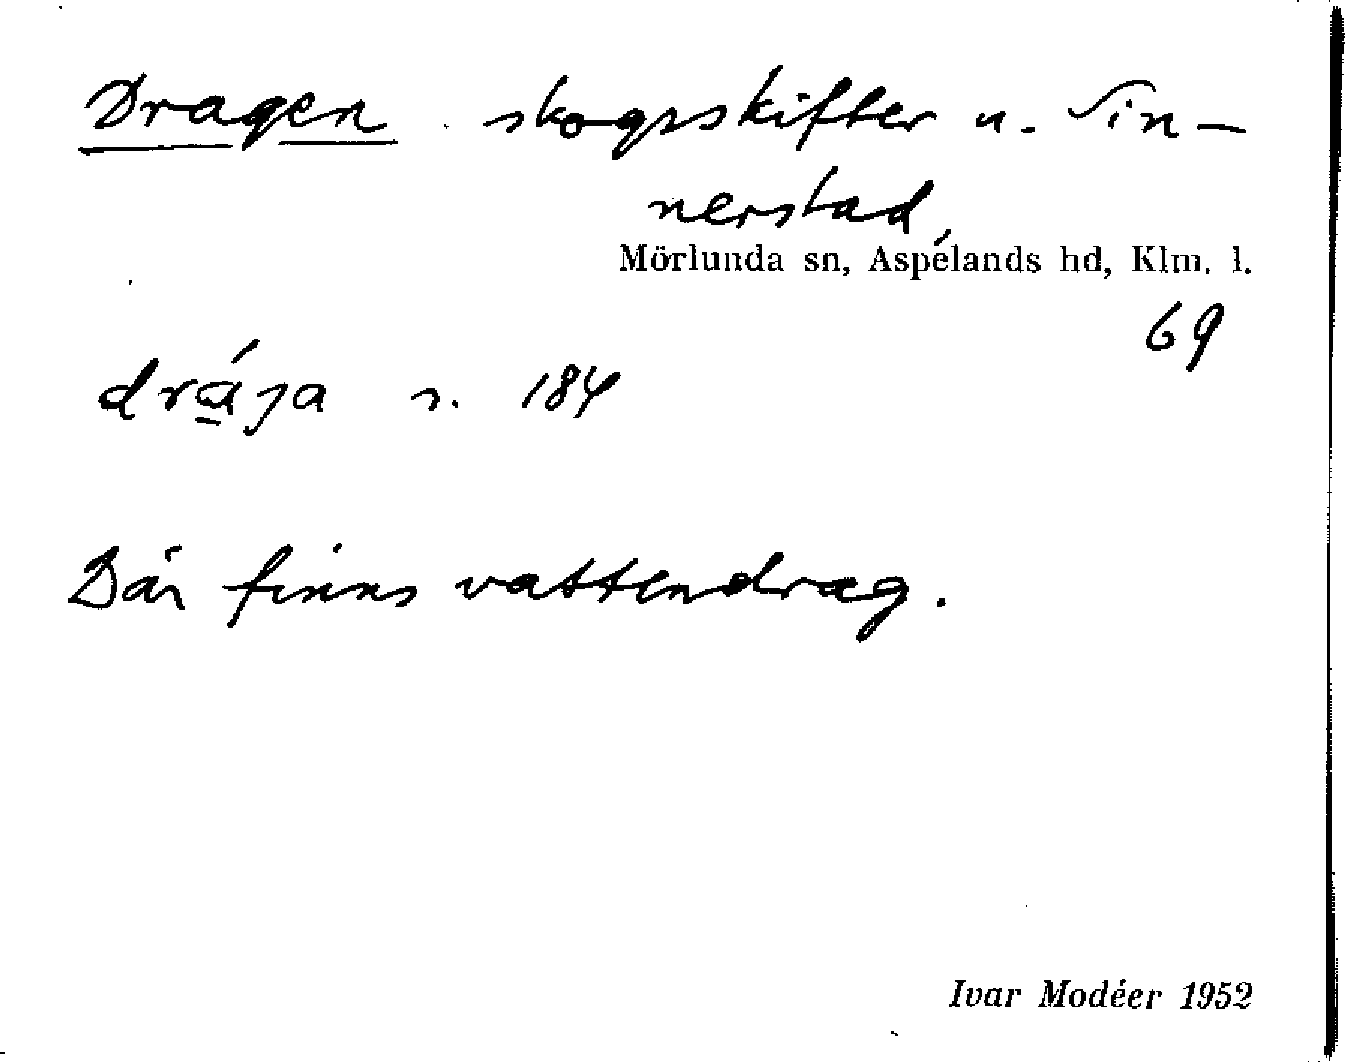 Dragen skogsskifter u. Sin-
nerstad,
Mörlunda sn, Aspelands hd, Klm. l.
69
dráʒa s. 184
Där finns vattendrag.
Ivar Modéer 1952